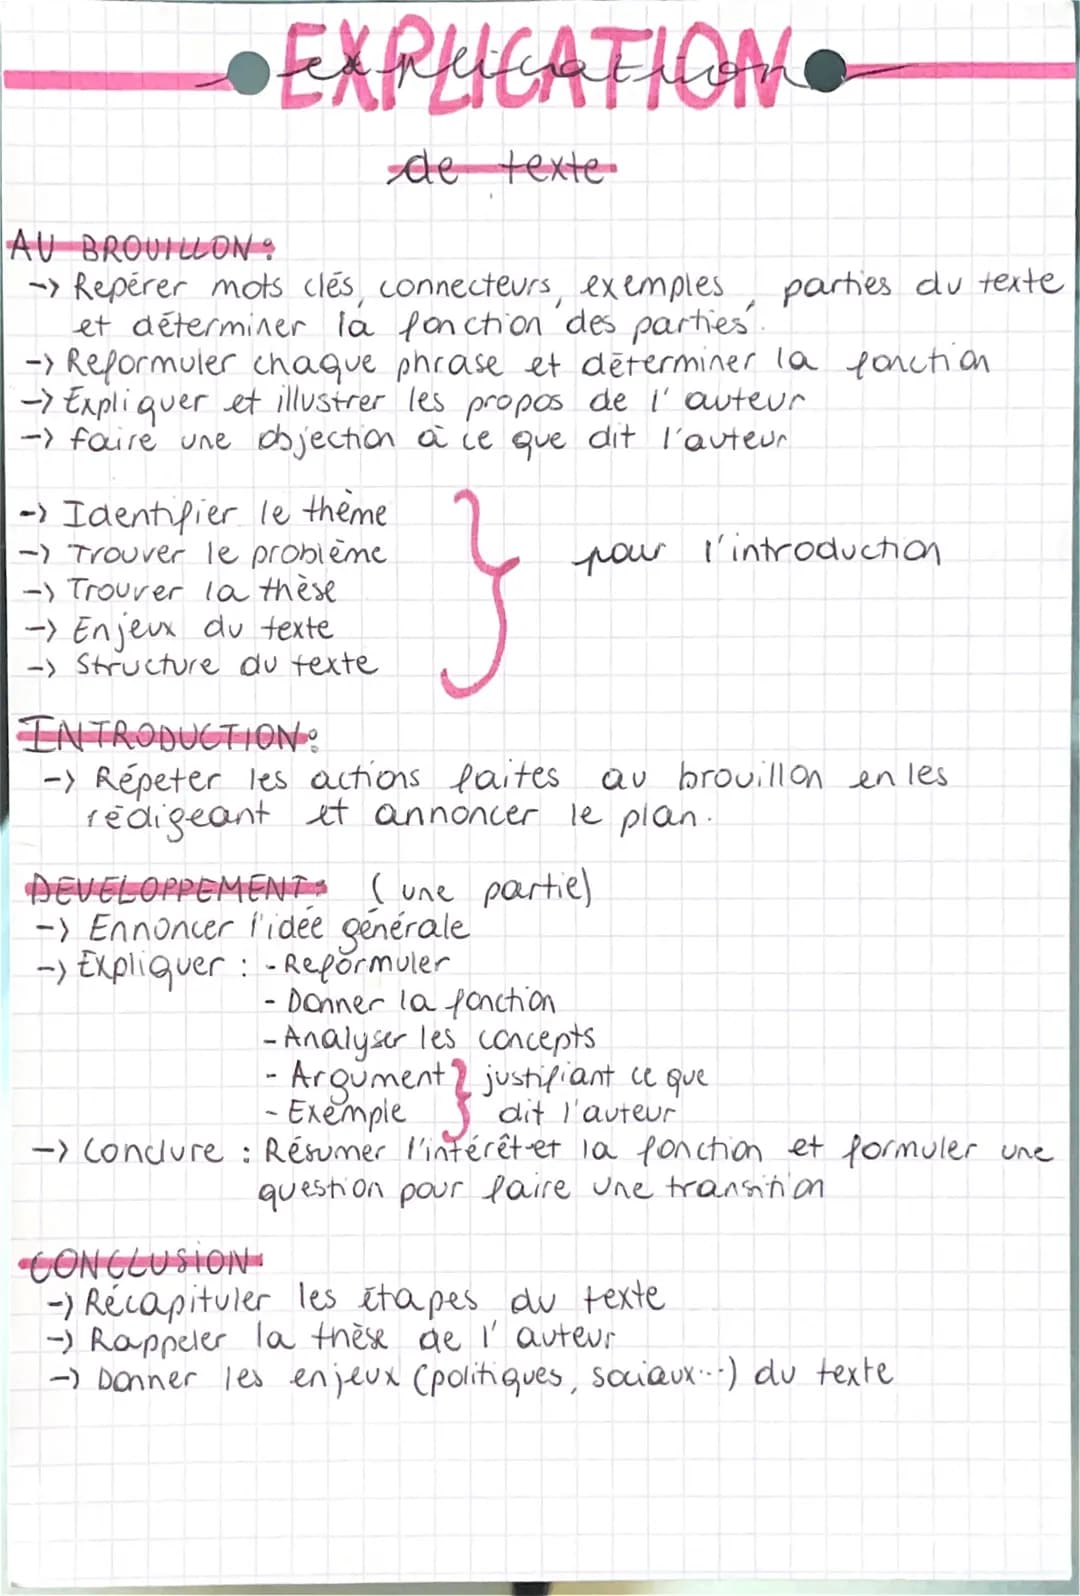 EXPLICATION
explication
de texte
AU BROUILLON:
-> Repérer mots clés, connecteurs, exemples, parties du texte
et déterminer la fonction des parties.
-> Reformuler chaque phrase et déterminer la fonction
-> Expliquer et illustrer les propos de l'auteur
-> faire une objection à ce que dit l'auteur
-> Identifier le thème
-> Trouver le problème
pour l'introduction
-> Trouver la thèse
-> Enjeux du texte
-> Structure du texte
INTRODUCTION:
-> Répeter les actions faites au brouillon en les
rédigeant et annoncer le plan.
DEVELOPPEMENT: (une partie)
-> Ennoncer l'idée générale
-> Expliquer : - Reformuler
- Donner la fonction
- Analyser les concepts
- Argument } justifiant ce que
- Exemple } dit l'auteur
-> Conclure : Résumer l'intérêt et la fonction et formuler une
question pour faire une transition
CONCLUSION
-> Récapituler les étapes du texte
-> Rappeler la thèse de l'auteur
-> Donner les enjeux (politiques, sociaux...) du texte